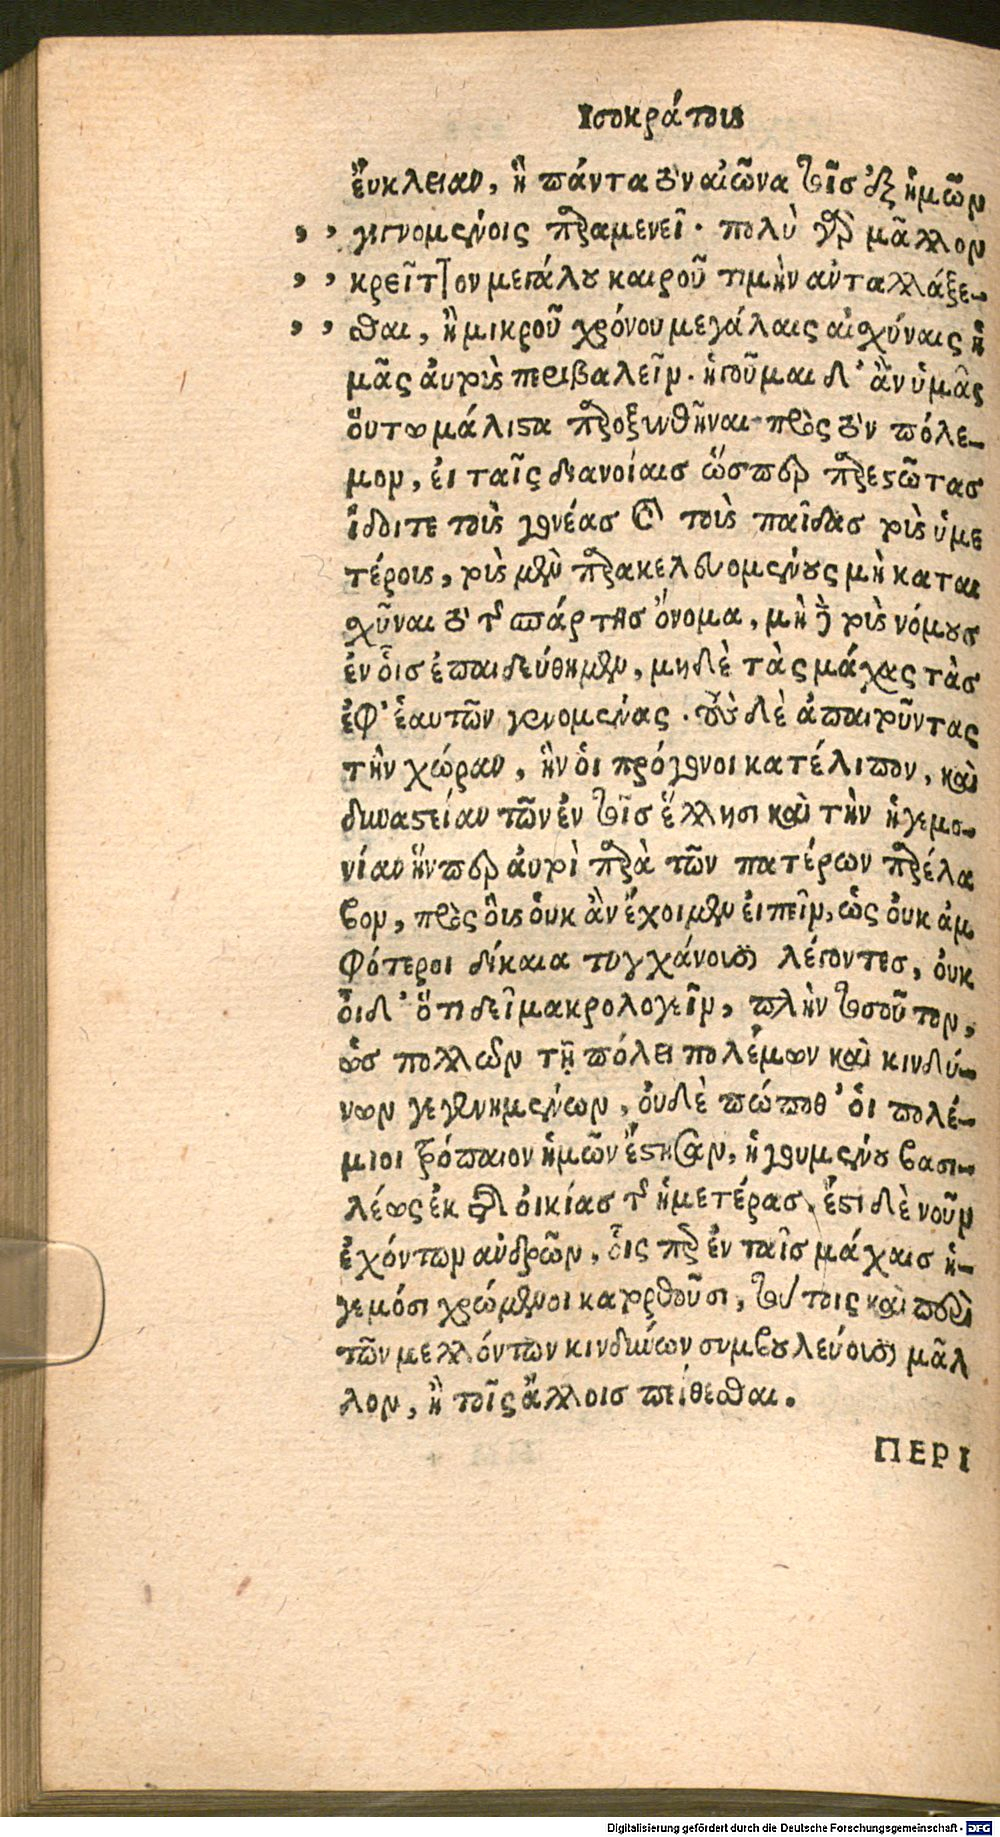 Ισοκράτους
ἔυκλειαν, ἣ πάντα τὸν αἰῶνα τοῖσ ἐξ ἡμῶν
,, γιγνομένοις παραμενεῖ. πολὺ γὰρ μᾶλλον
,, κρεῖττον μεγάλου καιροῦ τιμὴν ἀνταλλάξε-
,, σθαι, ἢ μικροῦ χρόνου μεγάλαις αἰσχύναις ἡ
μᾶς ἀυτοὺς περιβαλεῖν. ἡγοῦμαι δ' ἂν ὑμᾶς
ὅυτω μάλιστα παροξυνθῆναι πρὸς τὸν πόλε-
μον, ἐι ταῖς διανοίαισ ὥσπερ παρεστῶτασ
ἴδοιτε τοὺς γονέασ καὶ τοὺς παῖδασ τοὺς ὑμε
τέρους, τοὺς μὲν παρακελευομένους μὴ καται
σχῦναι τὸ τῆς σπάρτησ ὄνομα, μὴ δὲ τοὺς νόμουσ
ἐν οἷσ ἐπαιδεύθημεν, μηδὲ τὰς μάχας τὰσ
ἐφ' ἑαυτῶν γενομένας. τοὺς δὲ ἀπαιτοῦντας
τὴν χώραν, ἣν ὁι πρόγονοι κατέλιπον, καὶ
δυναστείαν τῶν ἐν τοῖσ ἕλλησι καὶ τὴν ἡγεμο-
νίαν ἥνπερ ἀυτοὶ παρὰ τῶν πατέρων παρέλα
βον, πρὸς ὃυς ὀυκ ἂν ἔχοιμεν ἐιπεῖν, ὡς ὀυκ ἀμ
φότεροι δίκαια τυγχάνουσι λέγοντεσ, ὀυκ
ὀῖδ' ὅτι δεῖ μακρολογεῖν, πλὴν τοσοῦτον,
ὡσ πολλῶν τῇ πόλει πολέμων καὶ κινδύ-
νων γεγενημένων, ὀυδὲ πώποθ' ὁι πολέ-
μιοι τρόπαιον ἡμῶν ἔστησαν, ἡγουμένου βασι-
λέως ἐκ τῆς ὀικίασ τῆς ἡμετέρασ. ἔστι δὲ νοῦν
ἐχόντων ἀνδρῶν, οἷς περ ἐν ταῖσ μάχαισ ἡ-
γεμόσι χρώμενοι κατορθοῦσι, τούτοις καὶ περὶ
τῶν μελλόντων κινδύνων συμβουλεύουσι μᾶλ
λον, ἢ τοῖς ἄλλοισ πείθεσθαι.
ΠΕΡΙ
Digitalisierung gefördert durch die Deutsche Forschungsgemeinschaft - DFG